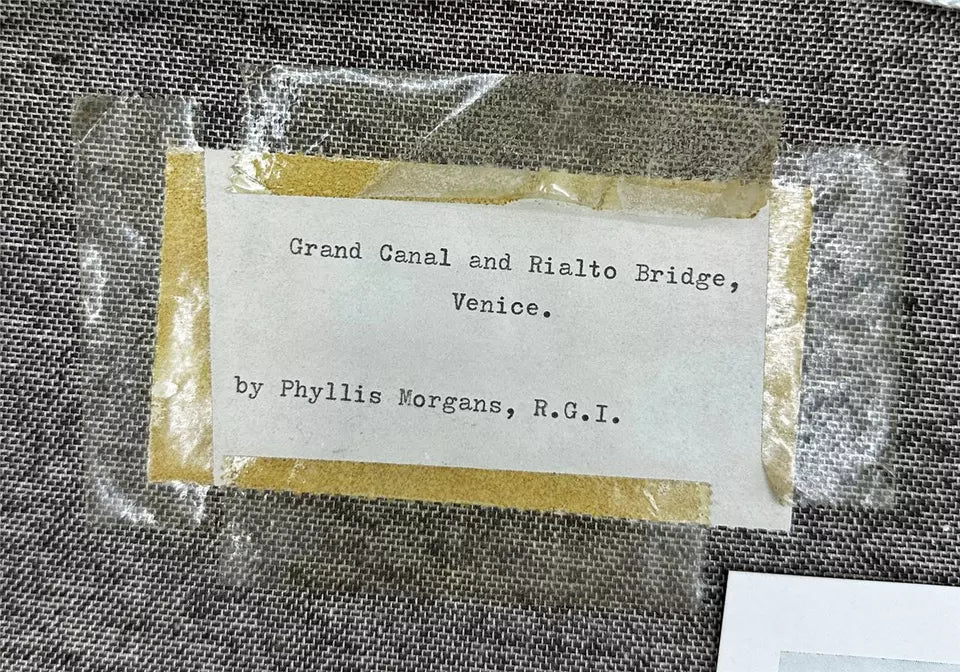 Grand Canal and Rialto Bridge,
Venice.
by Phyllis Morgans, R.G.I.